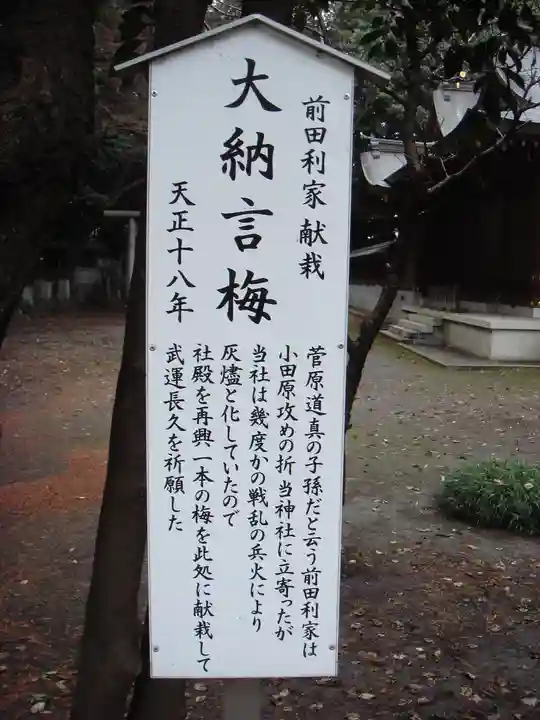 前田利家 献栽
大納言梅
天正十八年
菅原道真の子孫だと云う前田利家は
小田原攻めの折 当神社に立寄ったが
当社は幾度かの戦乱の兵火により
灰燼と化していたので
社殿を再興一本の梅を此処に献栽して
武運長久を祈願した